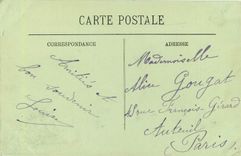 CARTE POSTALE
CORRESPONDANCE
Amitiés et
bon souvenir
ADRESSE
Mademoiselle
Alice Gougat
rue François-Gérard
Auteuil
Paris